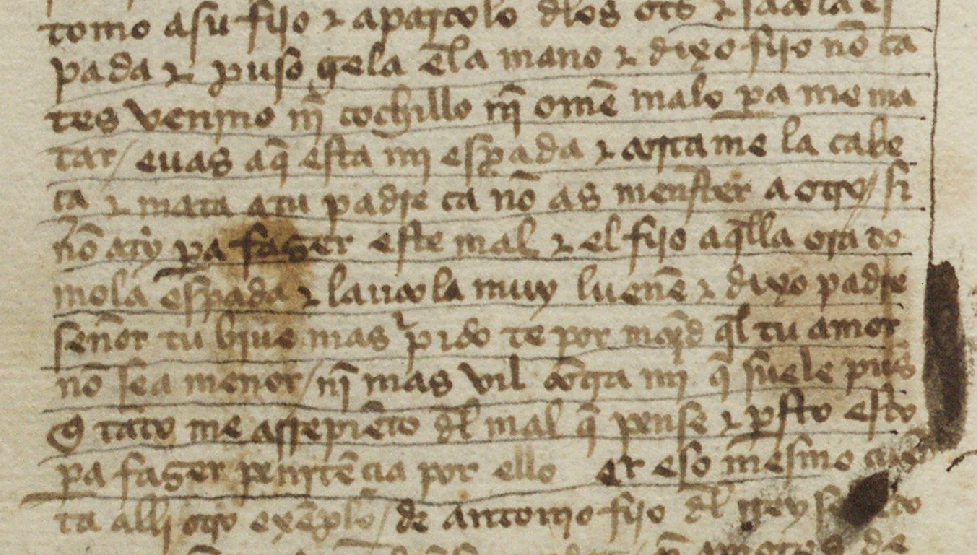 tomo a su fijo & apartolo dlos ots & sacola es
pada & puso gela ela mano & dixo fijo nõ ca
tes venino nĩ cochillo nĩ omẽ malo pa me ma
tar / evas aq̃ esta mi espada & corta me la cabe
ça & mata a tu padre ca nõ as menester a otro / si
nõ a ty pa fager este mal & el fijo aq̃lla ora to
mo la espada & lançola muy luene & dixo padre
señor tu bive mas pido te por mrçd q̃l tu amor
nõ sea menor / nĩ mas vil cõtra mi q̃ suele
tãto me arrepiẽto dl mal q̃ pense & psto esto
pa fager penitẽcia por ello et eso mesmo
ta alli otro exẽplo / de antonio fijo dl rrey